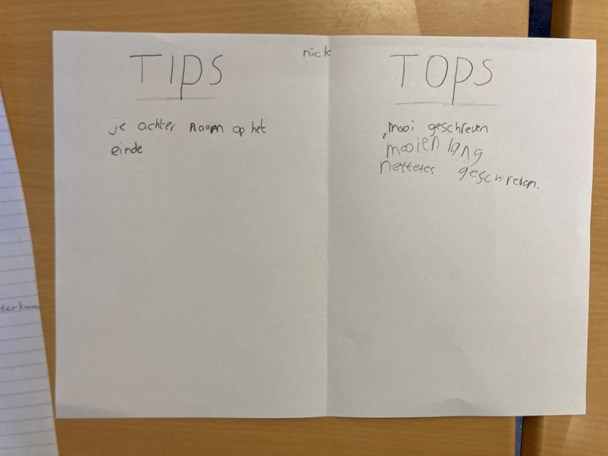 nick
TIPS
je achter naam op het
einde
TOPS
mooi geschreven
mooi en lang
netteres geschreven.